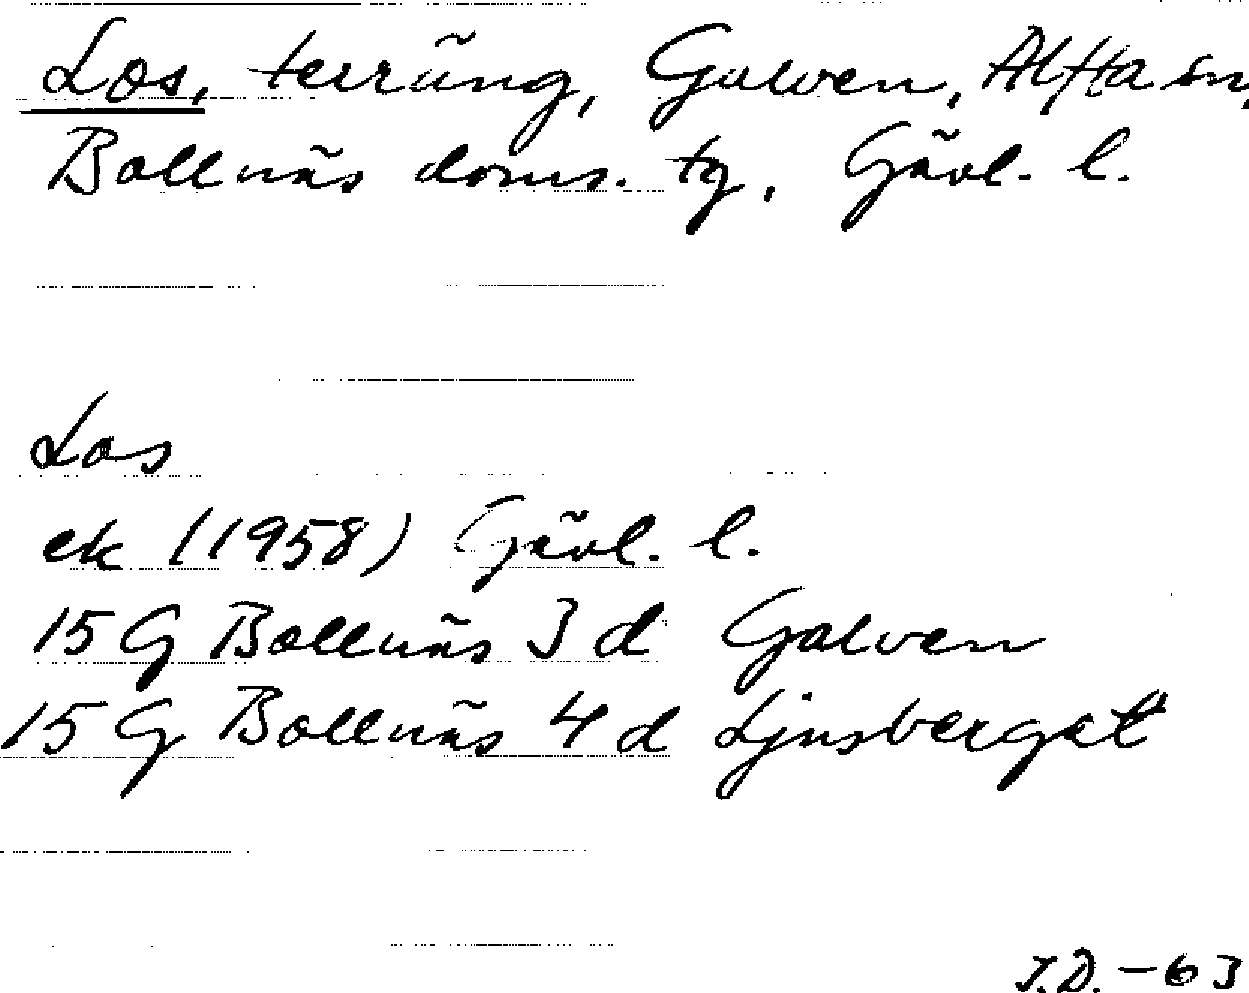 Los, terräng, Galven, Alfta sn,
Bollnäs doms. tg, Gävl. l.
Los
ek (1958) Gävl. l.
15 G Bollnäs 3 d Galven
15 G Bollnäs 4 d Ljusberget
I.D. - 63